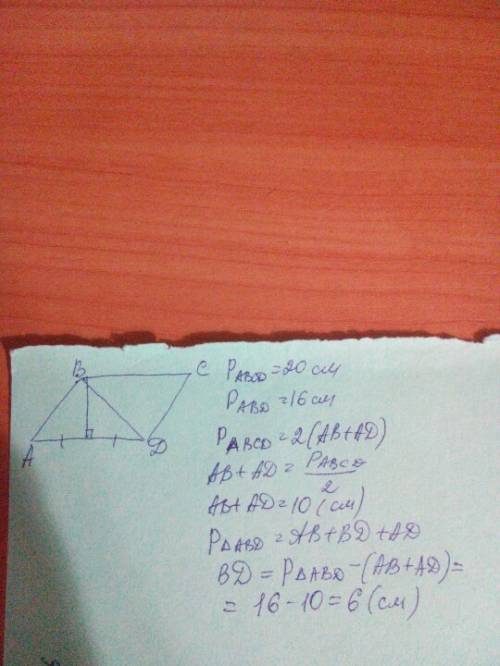 B C
A D
P_ABCD = 20 см
P_ABD = 16 см
P_ABCD = 2(AB+AD)
AB + AD = P_ABCD / 2
AB + AD = 10 (см)
P_ΔABD = AB + BD + AD
BD = P_ΔABD - (AB + AD) =
= 16 - 10 = 6 (см)